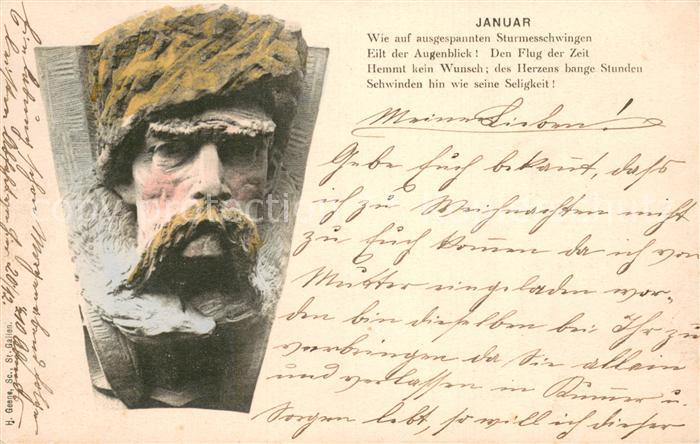 JANUAR
Wie auf ausgespannten Sturmesschwingen
Eilt der Augenblick! Den Flug der Zeit
Hemmt kein Wunsch; des Herzens bange Stunden
Schwinden hin wie seine Seligkeit!
Meine Lieben!
Gebe Euch bekannt, dass
ich zu Weihnachten nicht
zu Euch kommen da ich von
Mutter eingeladen wor-
den bin dieselben bei Ihr zu
verbringen da Sie allein
und verlassen in Kummer u.
Sorgen lebt, so will ich dieser
H. Geene, Sc., St-Gallen.